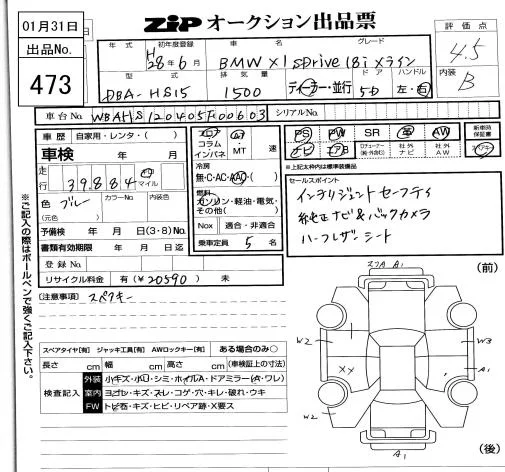 01月31日
出品No.
473
ZIP オークション出品票
評価点
4.5
内装
B
年式 初年度登録 車名 グレード
H28年6月 BMW X1 sDrive 18i Xライン
型式 排気量 ドア ハンドル
DBA-HS15 1500 ディーラー・並行 5D 左・右
車台No. WBAHS120405F00603 シリアルNo.
車歴 自家用・レンタ・( )
コラム インパネ MT 速
車検 年 月
冷房
無・C・AC・AAC・( )
走行 39,884 マイル
燃料
ガソリン・軽油・電気・その他( )
色 ブルー カラーNo. 内装色
(元色)
Nox 適合・非適合
予備検 年 月 日(3・8)No.
書類有効期限 年 月 日迄
乗車定員 5 名
登録No.
リサイクル料金 有(¥20590) 未
PS PW SR 革 AW
ナビ 社外AW
新車時保証書
※上記太枠内は標準装備品
セールスポイント
インテリジェントセーフティ
純正ナビ&バックカメラ
ハーフレザーシート
(注意事項) スペアキー
※ご記入の際はボールペンで強くご記入下さい。
スペアタイヤ[有] ジャッキ工具[有] AWロックキー[有] ある場合のみ○
長さ cm 幅 cm 高さ cm (車検証上の寸法)
検査記入
外装 小キズ・小凹・シミ・ホイルA・ドアミラー(A・ワレ)
室内 ヨゴレ・キズ・スレ・コゲ・穴・キレ・破れ・ウキ
FW トビ石・キズ・ヒビ・リペア跡・X要ス
スリA A1
(前)
W2
W3
XX
A1
W2
A1
(後)